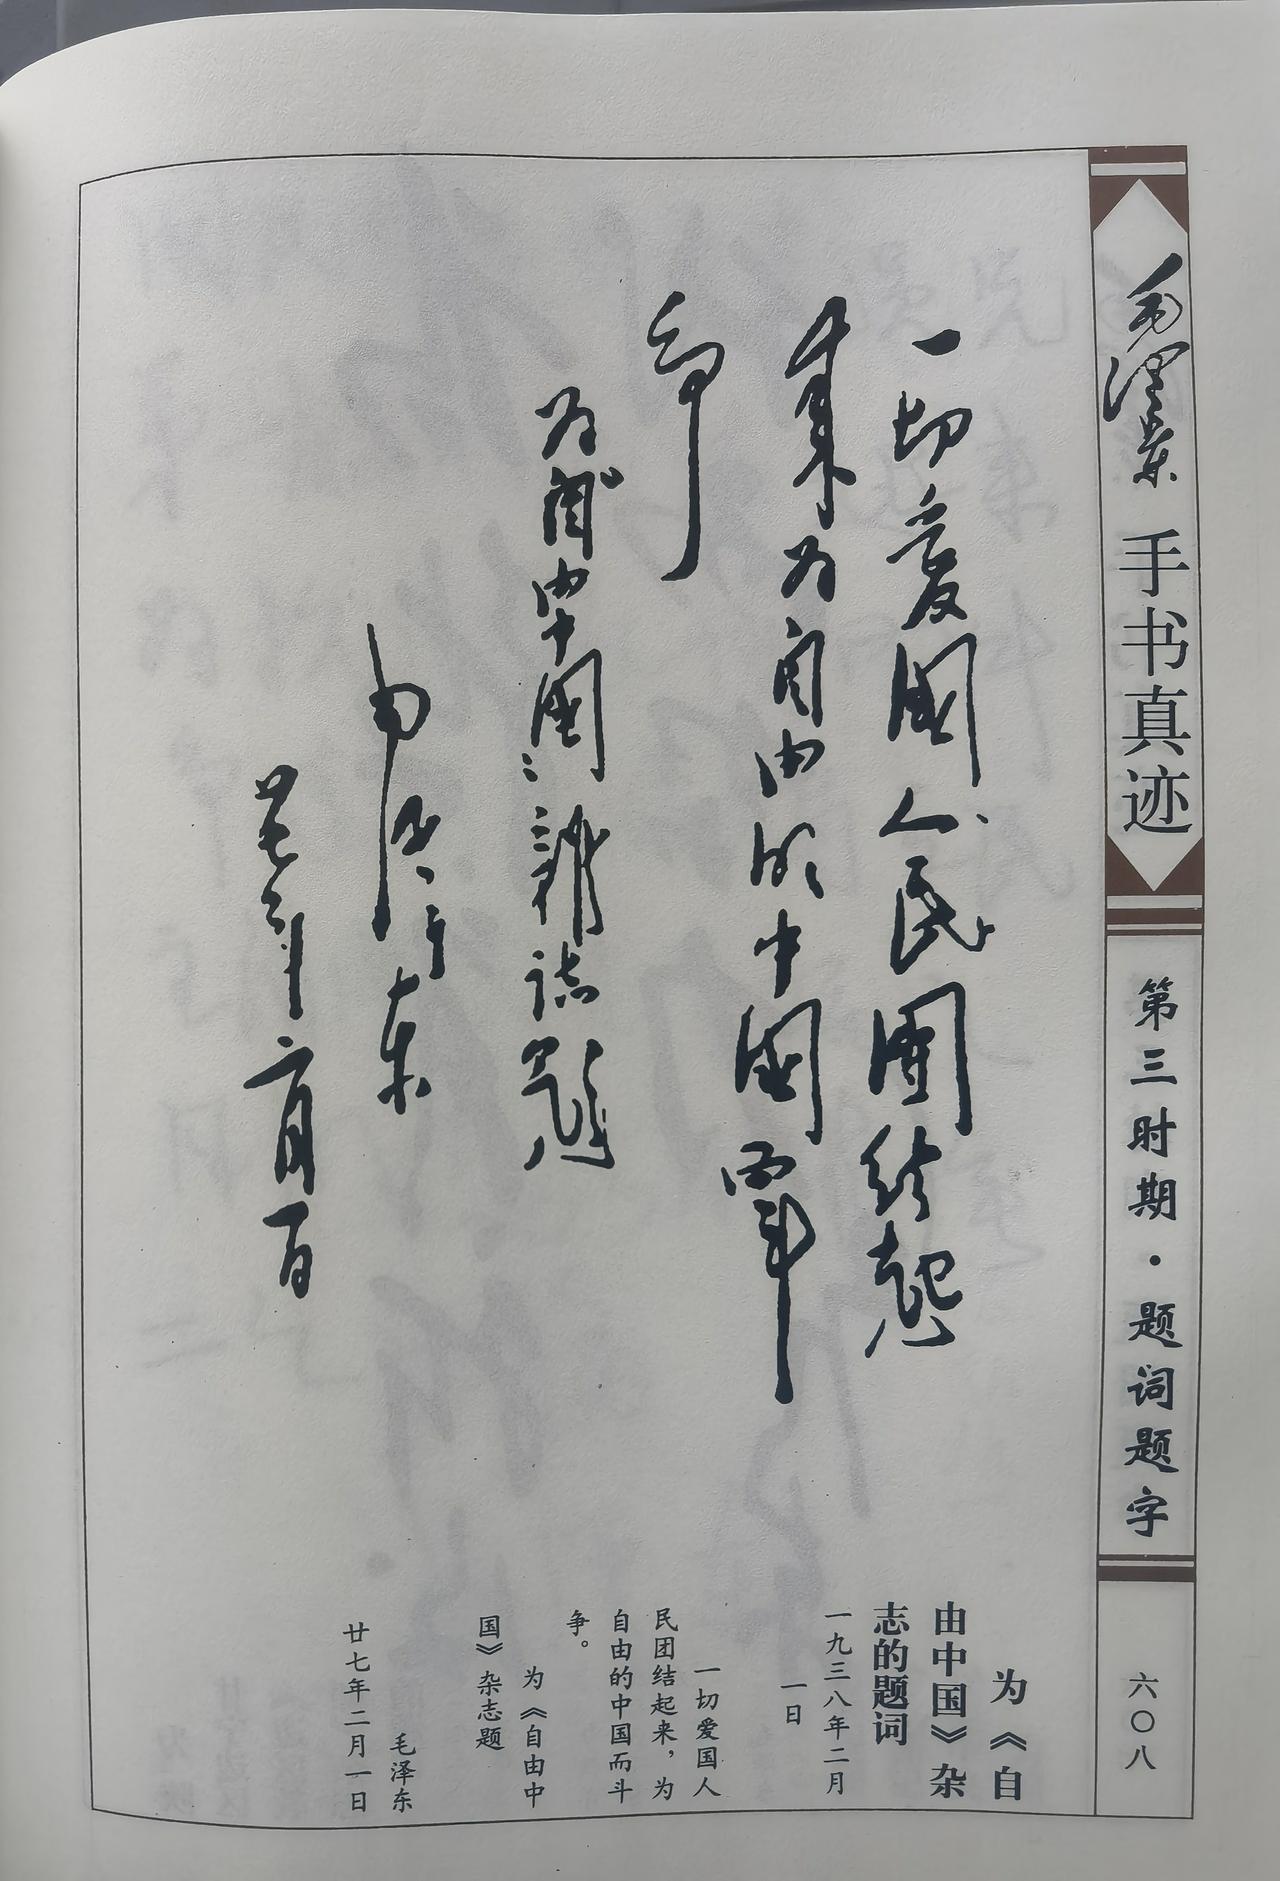 毛泽东 手书真迹
第三时期·题词题字
六〇八
一切爱國人民團结起
来为自由的中國而鬥
争
为「自由中國」雜誌题
毛泽东
廿七年二月一日
为《自
由中国》杂
志的题词
一九三八年二月
一日
一切爱国人
民团结起来，为
自由的中国而斗
争。
为《自由中
国》杂志题
毛泽东
廿七年二月一日